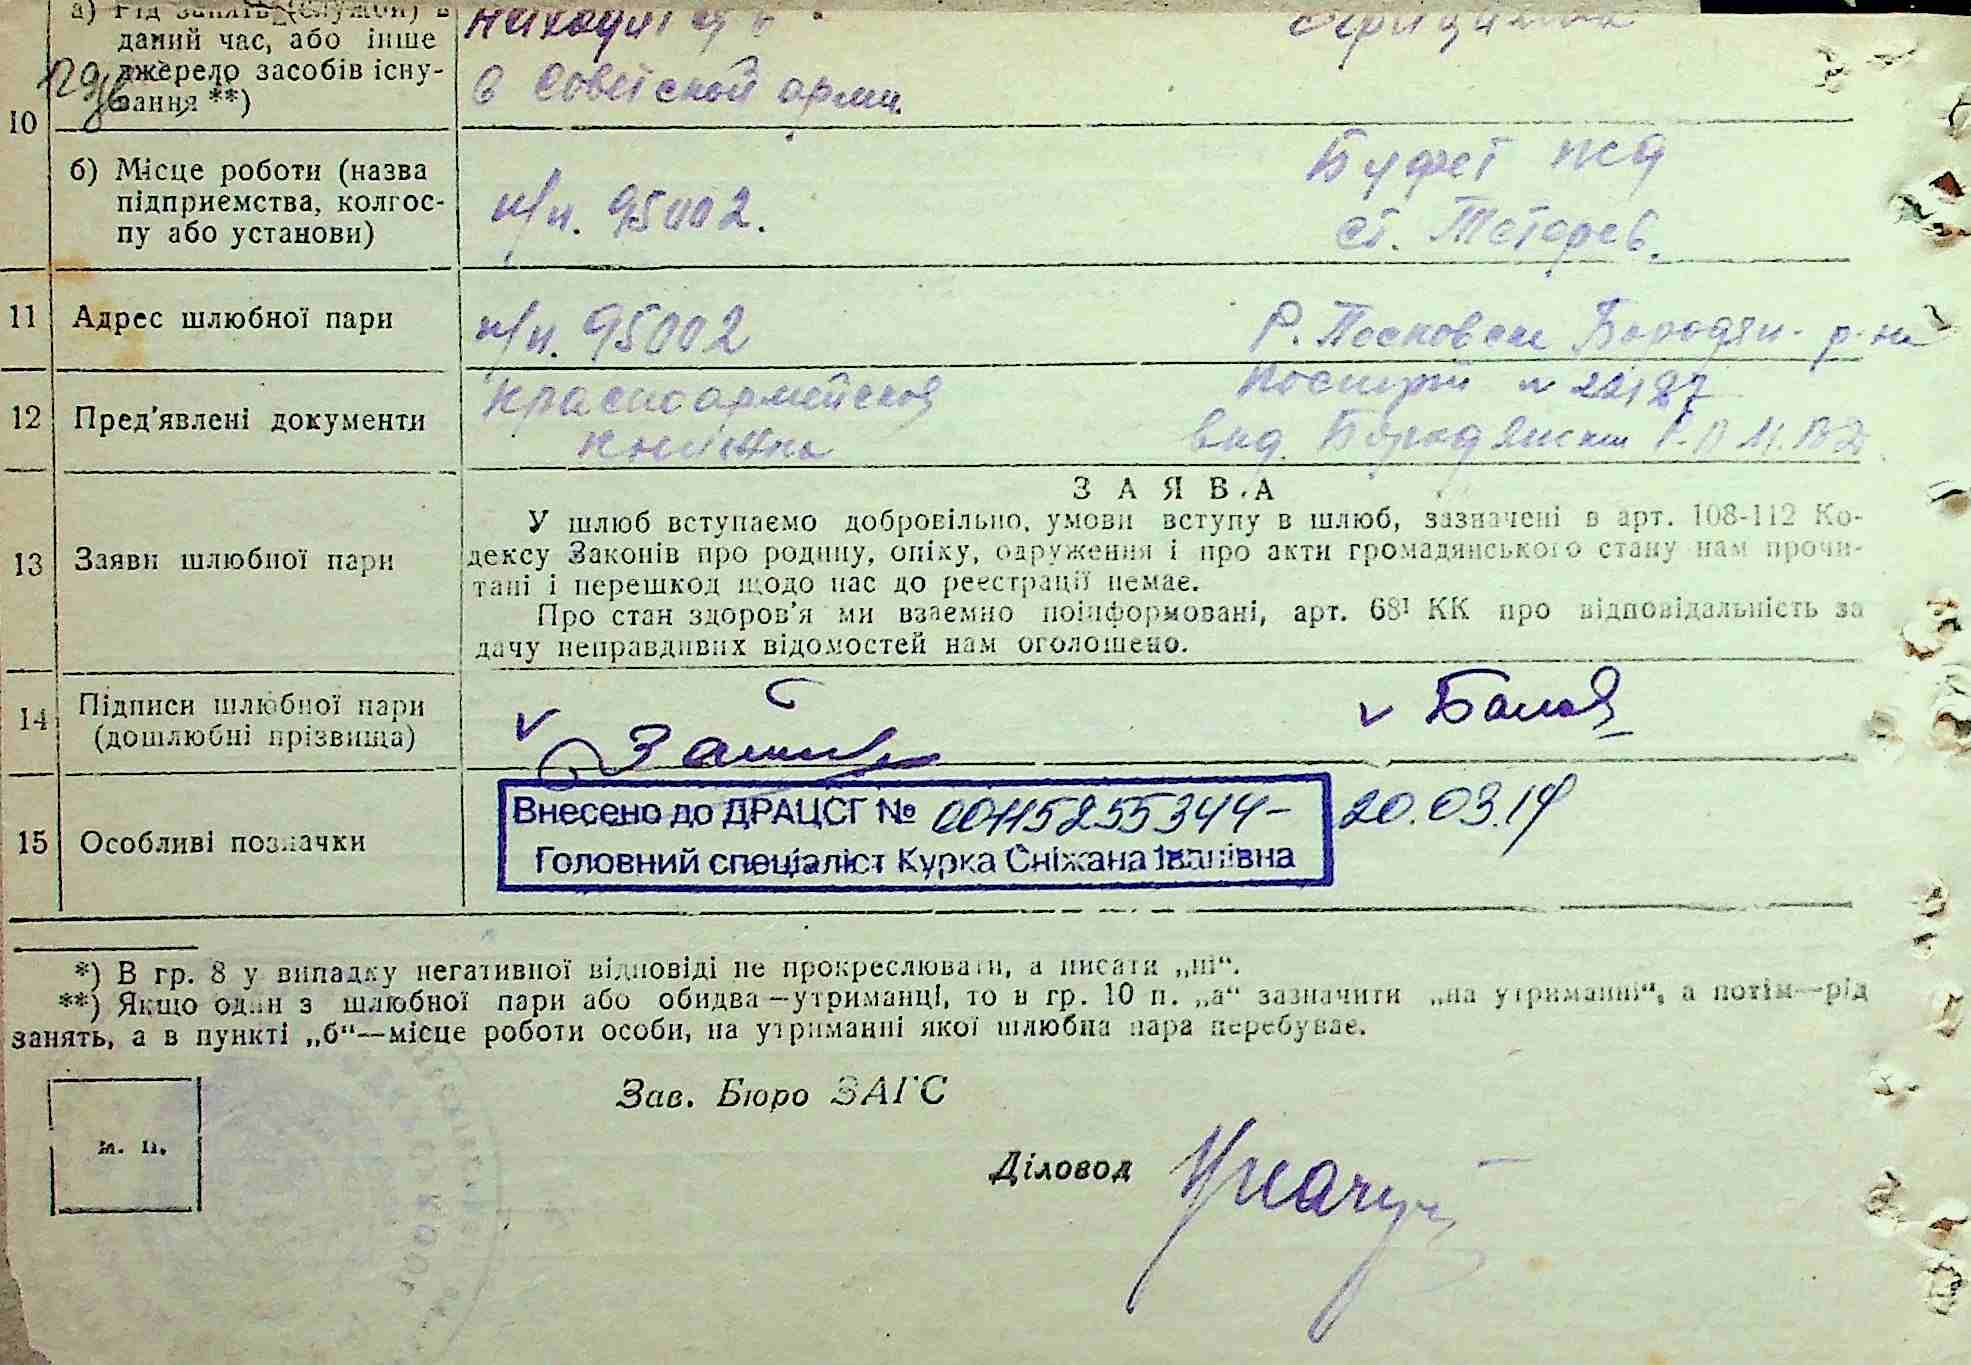 а) Рід занять (служби) в
даний час, або інше
джерело засобів існу-
вання **)
находится
в Советской арми
10
б) Місце роботи (назва
підприємства, колгос-
пу або установи)
п/п. 95002.
Буфет жд
ст. Тетерев.
11 Адрес шлюбної пари п/п. 95002 Бородян- р-на
12 Пред'явлені документи
Красноармейская
книжка
Паспорт
вид. Бородянским
13 Заяви шлюбної пари
ЗАЯВА
У шлюб вступаємо добровільно, умови вступу в шлюб, зазначені в арт. 108-112 Ко-
дексу Законів про родину, опіку, одруження і про акти громадянського стану нам прочи-
тані і перешкод щодо нас до реєстрації немає.
Про стан здоров'я ми взаємно поінформовані, арт. 68¹ КК про відповідальність за
дачу неправдивих відомостей нам оголошено.
14 Підписи шлюбної пари
(дошлюбні прізвища)
15 Особливі позначки
Внесено до ДРАЦСГ № 00115255344- 20.03.19
Головний спеціаліст Курка Сніжана Іванівна
*) В гр. 8 у випадку негативної відповіді не прокреслювати, а писати „ні“.
**) Якщо один з шлюбної пари або обидва—утриманці, то в гр. 10 п. „а“ зазначити „на утриманні“, а потім—рід
занять, а в пункті „б“—місце роботи особи, на утриманні якої шлюбна пара перебуває.
Зав. Бюро ЗАГС
м. п.
Діловод